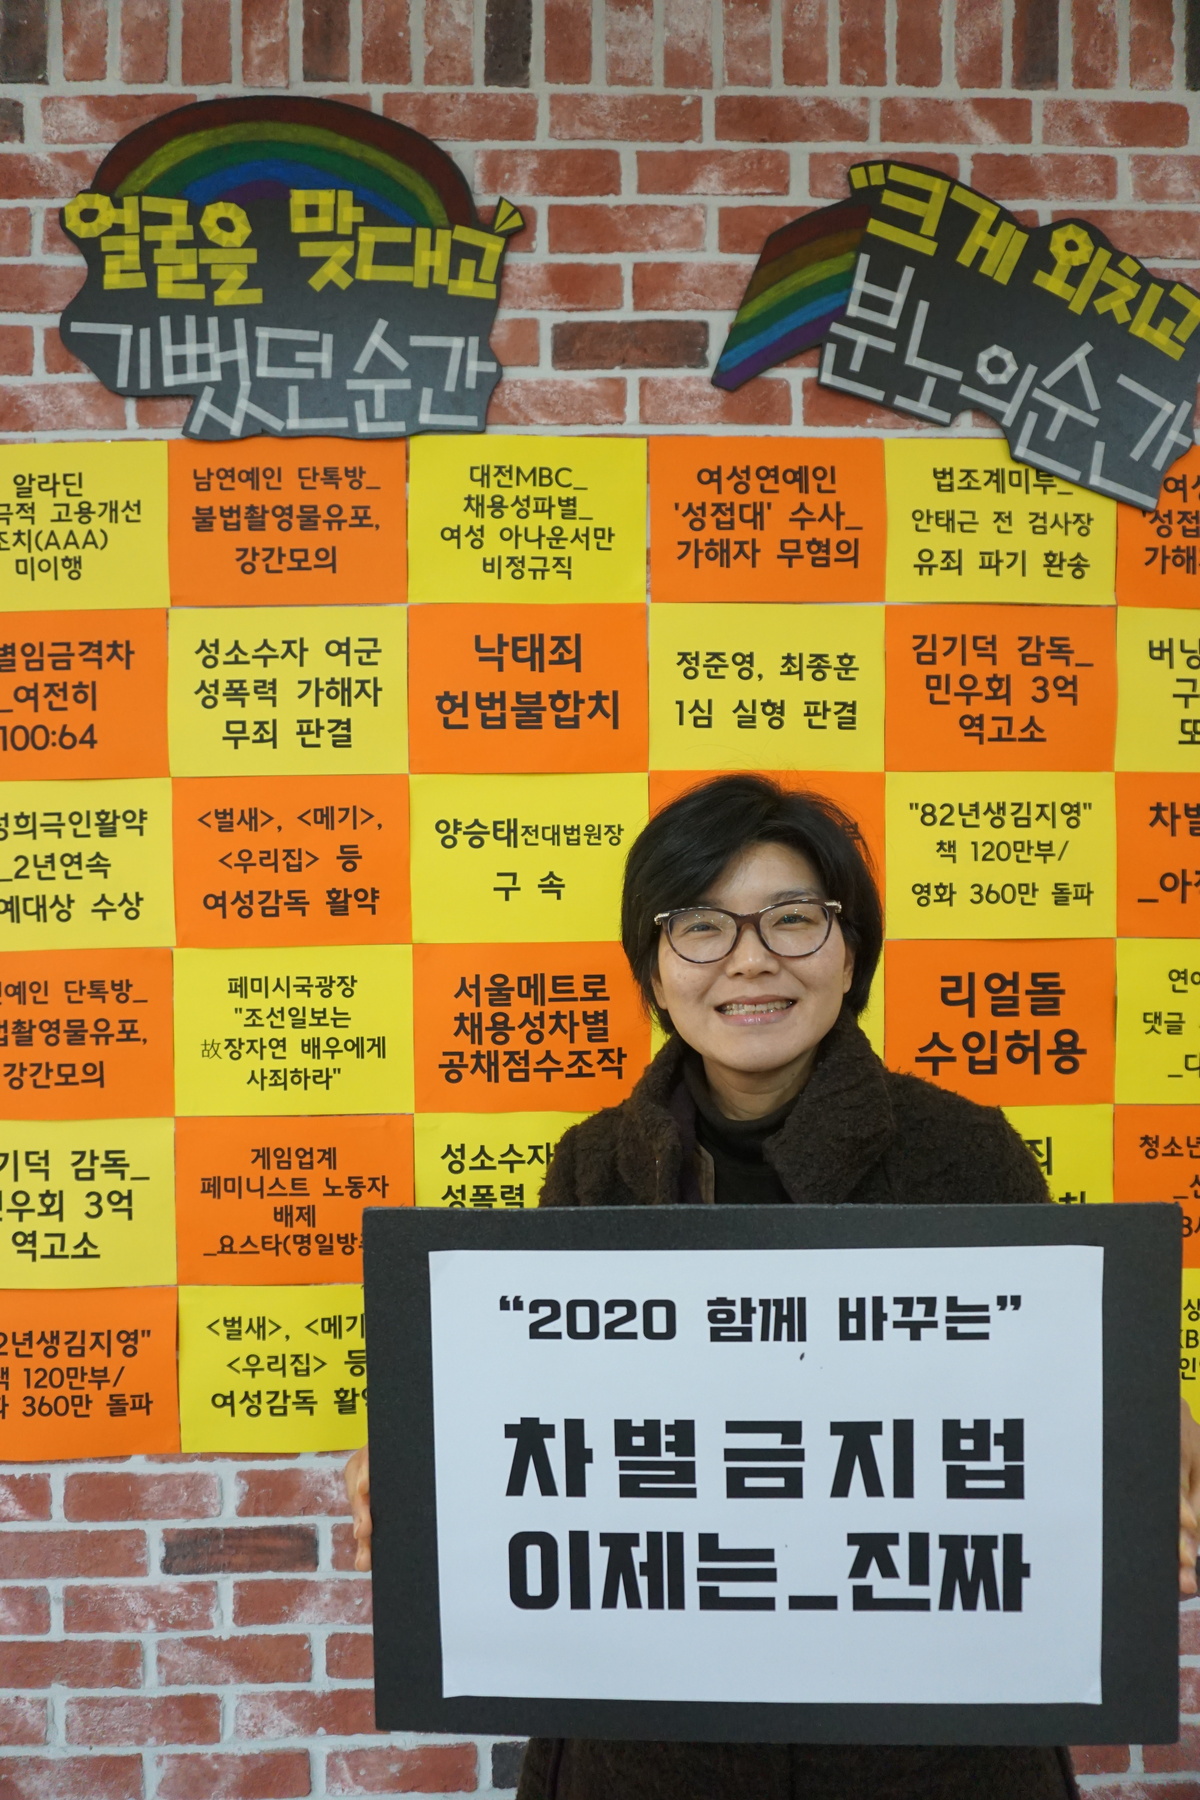 얼굴을 맞대고
기뻤던순간
"크게 외치고
분노의순간
알라딘
극적 고용개선
조치(AAA)
미이행
남연예인 단톡방_
불법촬영물유포,
강간모의
대전MBC_
채용성파별_
여성 아나운서만
비정규직
여성연예인
'성접대' 수사_
가해자 무혐의
법조계미투_
안태근 전 검사장
유죄 파기 환송
여성
'성접
가해
별임금격차
_여전히
100:64
성소수자 여군
성폭력 가해자
무죄 판결
낙태죄
헌법불합치
정준영, 최종훈
1심 실형 판결
김기덕 감독_
민우회 3억
역고소
버닝
구
또
성희극인활약
_2년연속
예대상 수상
<벌새>, <메기>,
<우리집> 등
여성감독 활약
양승태전대법원장
구 속
"82년생김지영"
책 120만부/
영화 360만 돌파
차별
_아
연예인 단톡방_
법촬영물유포,
강간모의
페미시국광장
"조선일보는
故장자연 배우에게
사죄하라"
서울메트로
채용성차별
공채점수조작
리얼돌
수입허용
연예
댓글
기덕 감독_
민우회 3억
역고소
게임업계
페미니스트 노동자
배제
_요스타(명일방
성소수자
성폭력
청소년
2년생김지영"
책 120만부/
화 360만 돌파
<벌새>, <메기
<우리집> 등
여성감독 활약
“2020 함께 바꾸는”
차별금지법
이제는_진짜